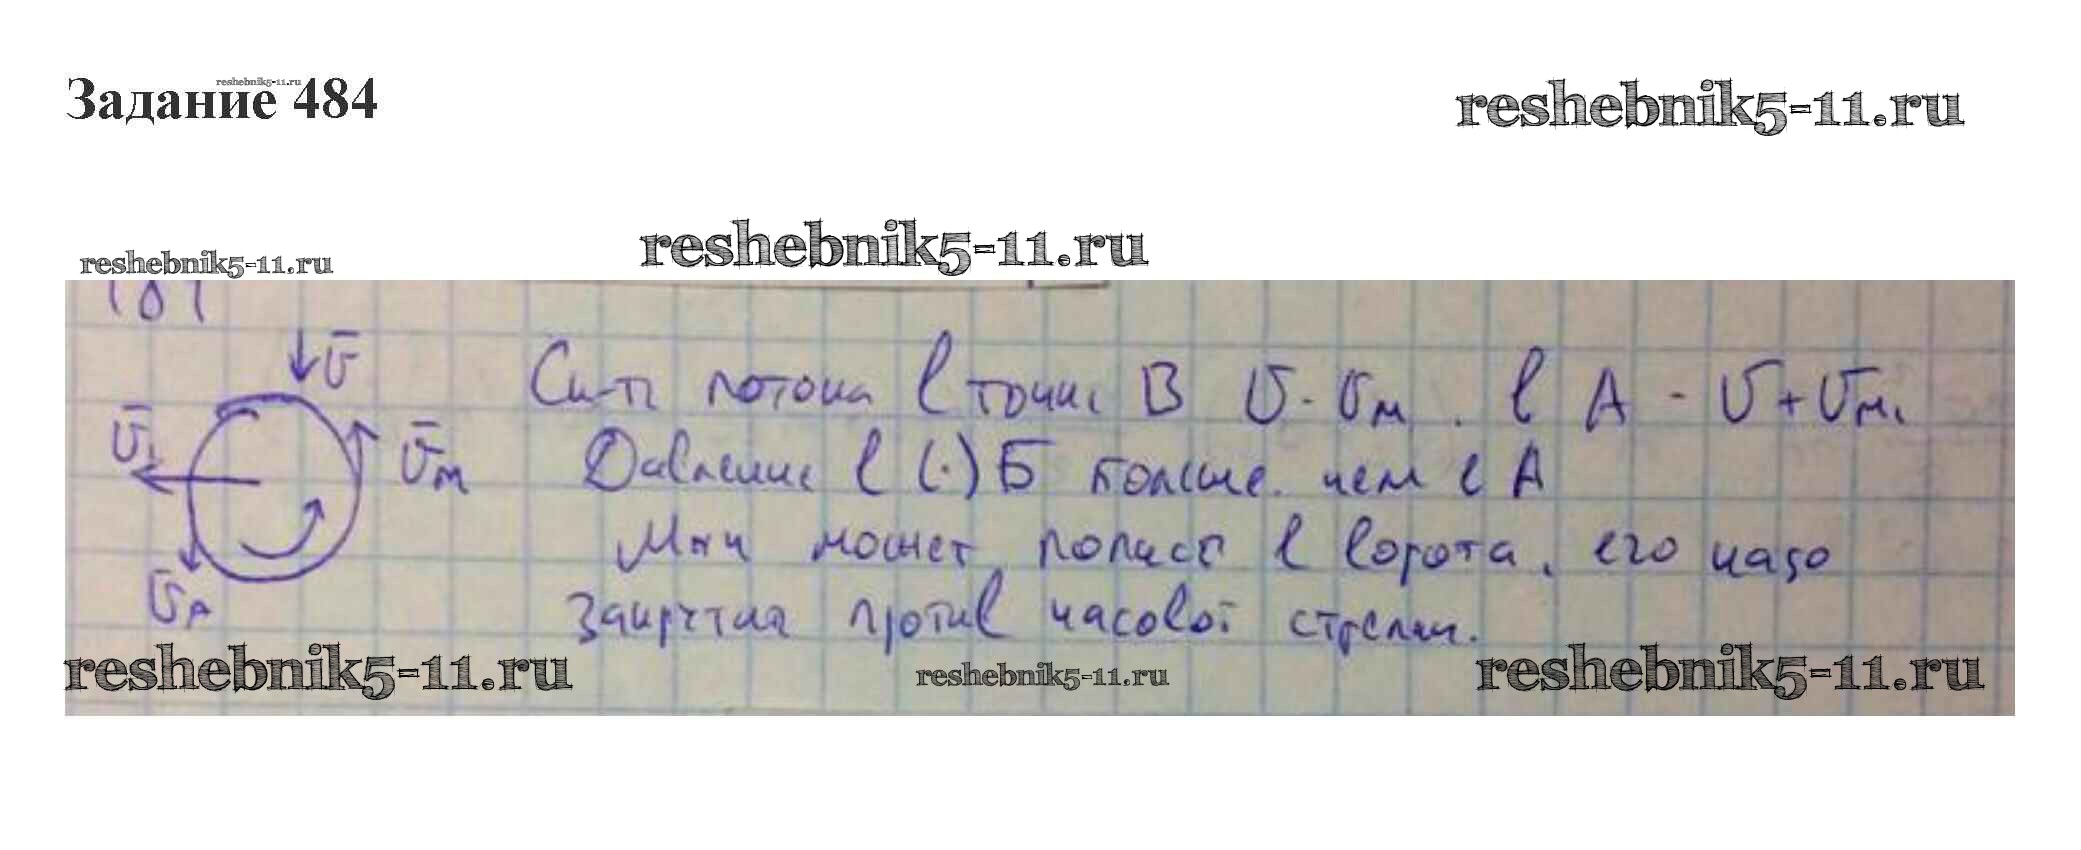 reshebnik5-11.ru
Задание 484
reshebnik5-11.ru
reshebnik5-11.ru
reshebnik5-11.ru
v̅
v̅₁
v̅м
v̅А
Ск-ть потока в точке В v - vм. в А - v + vм.
Давление в (·) Б больше. чем в А
Мяч может попасть в ворота, его надо
закрутить против часовой стрелки.
reshebnik5-11.ru
reshebnik5-11.ru
reshebnik5-11.ru